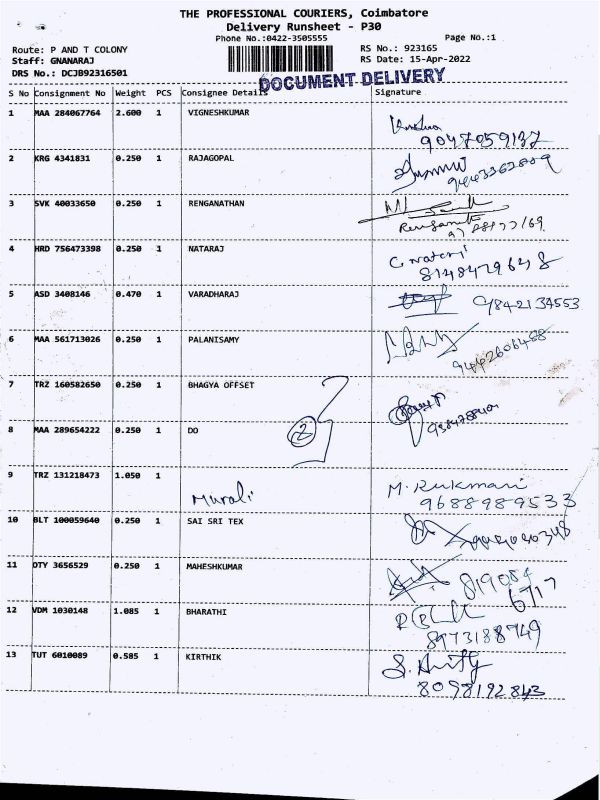 THE PROFESSIONAL COURIERS, Coimbatore
Delivery Runsheet - P30
Phone No.:0422-3505555
Page No.:1
Route: P AND T COLONY
RS No.: 923165
Staff: GNANARAJ
RS Date: 15-Apr-2022
DRS No.: DCJB92316501
DOCUMENT DELIVERY
S No Consignment No Weight PCS Consignee Details Signature
1 MAA 284067764 2.600 1 VIGNESHKUMAR
9047059137
2 KRG 4341831 0.250 1 RAJAGOPAL
9443362809
3 SVK 40033650 0.250 1 RENGANATHAN
Renganath
4 HRD 756473398 0.250 1 NATARAJ
8148479648
5 ASD 3408146 0.470 1 VARADHARAJ
9842134553
6 MAA 561713026 0.250 1 PALANISAMY
9442606468
7 TRZ 160582650 0.250 1 BHAGYA OFFSET
8 MAA 289654222 0.250 1 DO
2
9 TRZ 131218473 1.050 1
Murali
M. Rukmani
9688989533
10 BLT 100059640 0.250 1 SAI SRI TEX
11 OTY 3656529 0.250 1 MAHESHKUMAR
819084
6717
12 VDM 1030148 1.085 1 BHARATHI
8973188749
13 TUT 6010089 0.585 1 KIRTHIK
8098192843